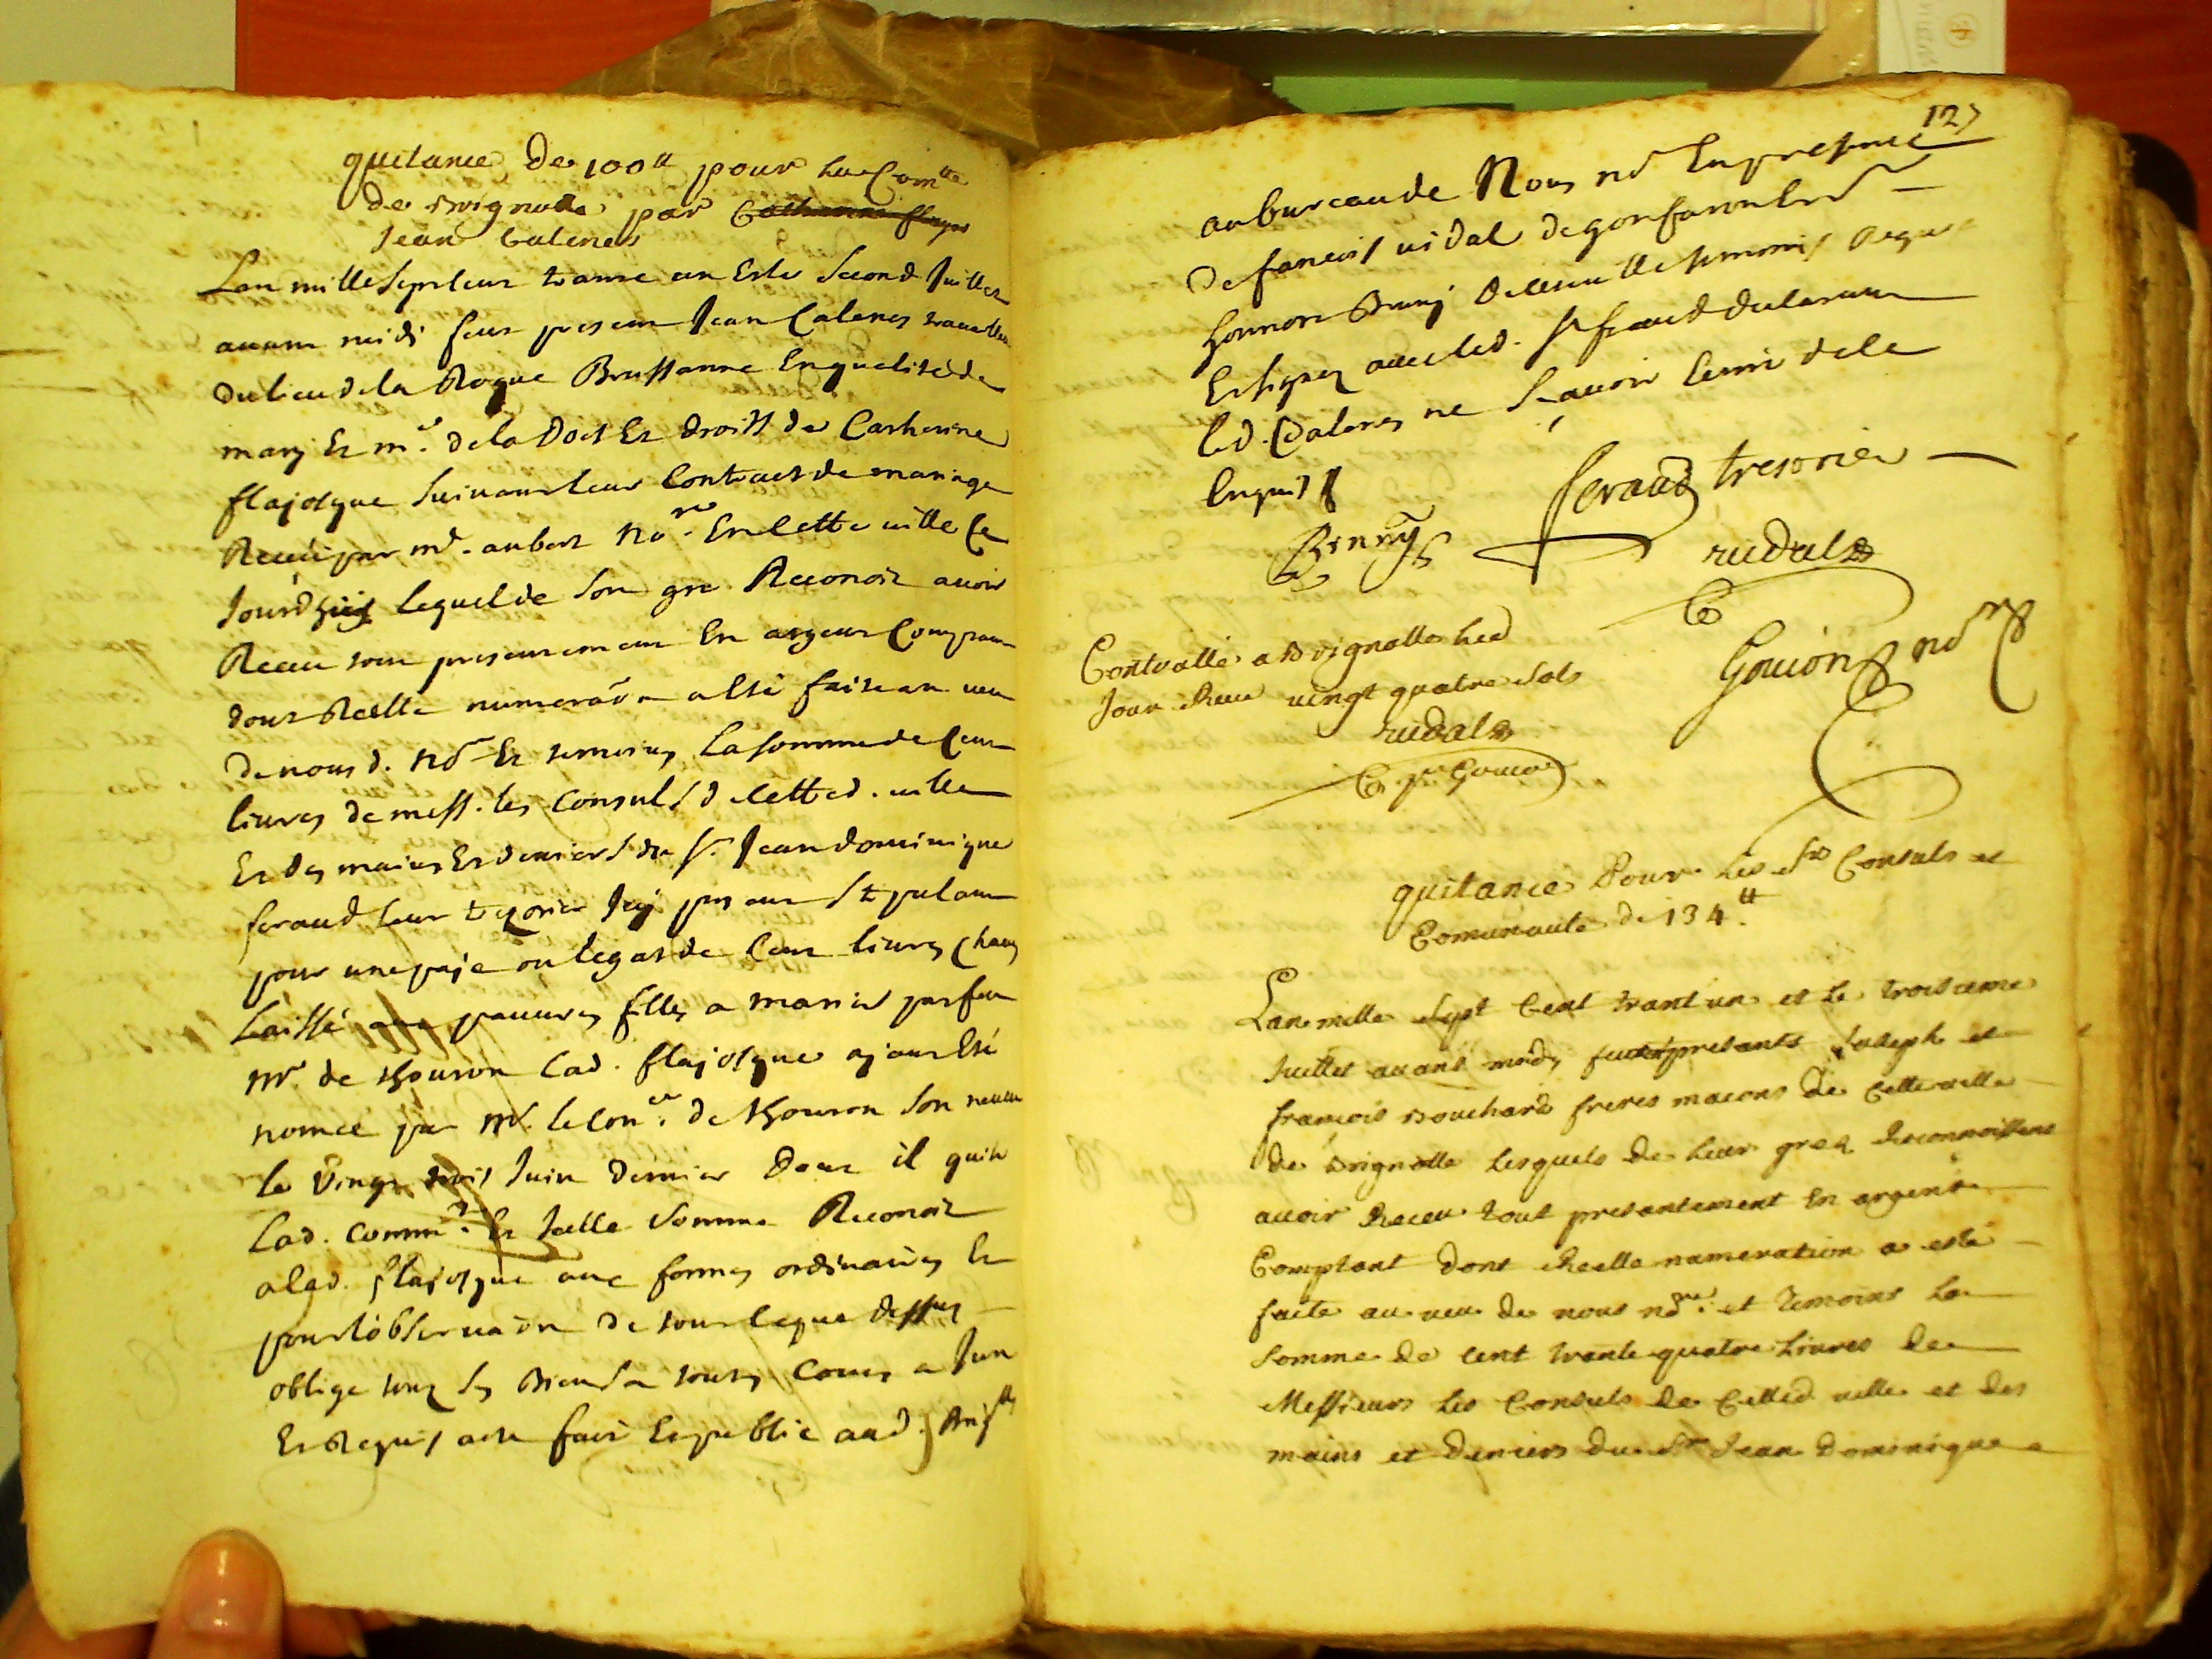 quitance de 100ᵗᵗ pour la Comᵗᵉ
de Brignolle par Catherine flayos
Jean Calenes
Lan mille sept cens trante un Et le second Juillet
avant midi feut present Jean Calenes travailleur
du lieu de la Roque Brussanne En qualité de
mary Et mᵉ. de la Dot Et droits de Catherine
flajosque suivant leur Contract de mariage
Receu par mᵉ. aubert noʳᵉ. En cette ville Ce
Jourdhuy lequel de son gre Reconoit avoir
Receu tout presentement En argent Comptant
dont Reelle numeraõn a esté faite au veu
de nousd. noʳᵉ Et temoins La somme de Cent
livres de mess. les Consuls de cetted. ville
Et des mains Et deniers du sʳ. Jean dominique
feraud leur trezorier Icy present Stipulant
pour une paje ou legat de Cent livres Chacun
Laissé aux pauvres filles a marier par feu
Mʳ. de Thouron Lad. flajosque ajant Esté
nomée par Mʳ. le Conᵉʳ. de Thouron son neveu
le Vingt trois Juin dernier Dont il quite
Lad. Commᵗᵉ. Et Icelle somme Reconoit
a lad. flajosque aux formes ordinaires Et
pour lobservaõn de tout ce que dessus
oblige tous ses Biens a toutes Cours a Jun
Et Requis acte fait Et publié aud. Brigˡˡᵉˢ
127
au bureau de Nous noʳᵉ En presence
de francois vidal de gonfaron Et
honnoré Bruny de cette ville temoins Requis
Et signez avec led. sʳ feraud du
led. Calenes ne Sçavoir Ecrire de ce
Enquis
Bruny feraud tresorier
vidal
Goujon noʳᵉ
Controllé a Brignolle led
Jour Receu vingt quatre sols
vidal
Goujon
quitance Pour les Sʳˢ Consuls et
Comunauté de 134ᵗᵗ.
Lan mille sept Cent trant'un et le troisieme
Juillet avant midy furent presants Joseph et
françois Bouchard freres macons de Cette ville
de Brignolle lesquels de leur greé Reconnoissent
avoir Receu tout presantement En argent
Comptant dont Reelle numeration a esté
faite au veu de nous noʳᵉ. et Temoins La
Somme de Cent trante quatre Livres de
Messieurs Les Consuls de Cetted. ville et des
mains et Deniers du Sʳ Jean Dominique